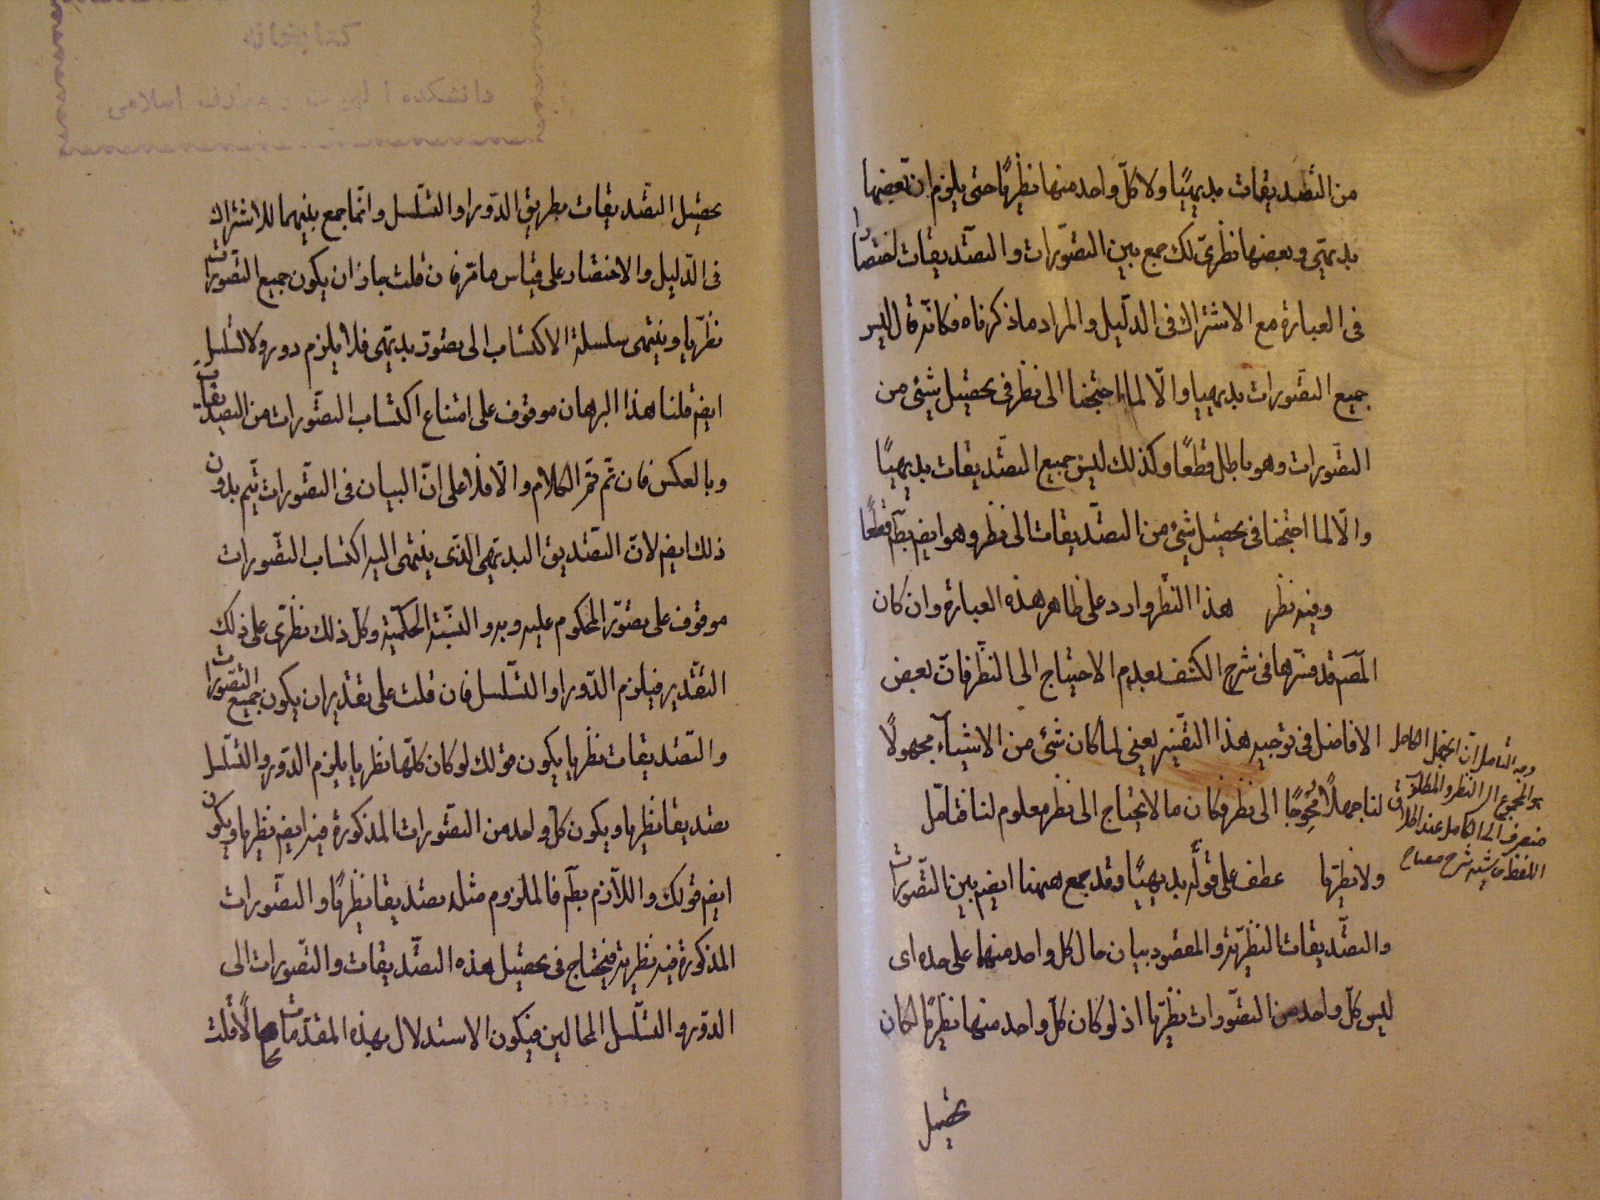 من التصديقات بديهيا ولا كل واحد منها نظريا حتى يلزم ان بعضها
بديهى وبعضها نظرى لك جمع بين التصورات والتصديقات اختصارا
فى العبارة مع الاشتراك فى الدليل والمراد ما ذكرناه فكانه قال ليس
جميع التصورات بديهيا والا لما احتجنا الى نظر فى تحصيل شئ من
التصورات وهو باطل قطعا وكذلك ليس جميع التصديقات بديهيا
والا لما احتجنا فى تحصيل شئ من التصديقات الى نظر وهو ايض بط قطعا
وفيه نظر هذا النظر وارد على ظاهر هذه العبارة وان كان
المص قد فسرها فى شرح الكشف بعدم الاحتياج الى النظر فان بعض
الافاضل فى توجيه هذا التفسير يعنى لما كان شئ من الاشياء مجهولا
لنا جهلا محوجا الى نظر فكان ما لا يحتاج الى نظر معلوم لنا فتامل
ولا نظريا عطف على قوله بديهيا وقد جمع ههنا ايض بين التصورات
والتصديقات النظرية والمقصود بيان حال كل واحد منهما على حده اى
ليس كل واحد من التصورات نظريا اذ لو كان كل واحد منها نظريا لكان
تحصيل
وجه التامل ان الجهل الكامل
هو المحوج الى النظر والمطلق
منصرف الى الكامل عند اطلاق
اللفظ حاشيه شرح
تحصيل التصديقات بطريق الدور او التسلسل وانما جمع بينهما للاشتراك
فى الدليل والاختصار على قياس ما مر فان قلت جاز ان يكون جميع التصورات
نظريا وينتهى سلسلة الاكتساب الى تصديق بديهى فلا يلزم دور ولا تسلسل
ايض قلنا هذا البرهان موقوف على امتناع اكتساب التصورات من التصديقات
وبالعكس فان تم تم الكلام والا فلا على ان البيان فى التصورات يتم بدون
ذلك ايض لان التصديق البديهى الذى ينتهى اليه اكتساب التصورات
موقوف على تصور المحكوم عليه وبه والنسبة الحكمية وكل ذلك نظرى على ذلك
التقدير فيلزم الدور او التسلسل فان قلت على تقدير ان يكون جميع التصورات
والتصديقات نظريا يكون قولك لو كان كلها نظريا يلزم الدور والتسلسل
تصديقا نظريا ويكون كل واحد من التصورات المذكورة فيه ايض نظريا ويكون
ايض قولك واللازم بط فالملزوم مثله تصديقا نظريا والتصورات
المذكورة فيه نظرية فيحتاج فى تحصيل هذه التصديقات والتصورات الى
الدور والتسلسل المحالين فيكون الاستدلال بهذه المقدمات محالا قلت
دانشكده الهيات و معارف اسلامى